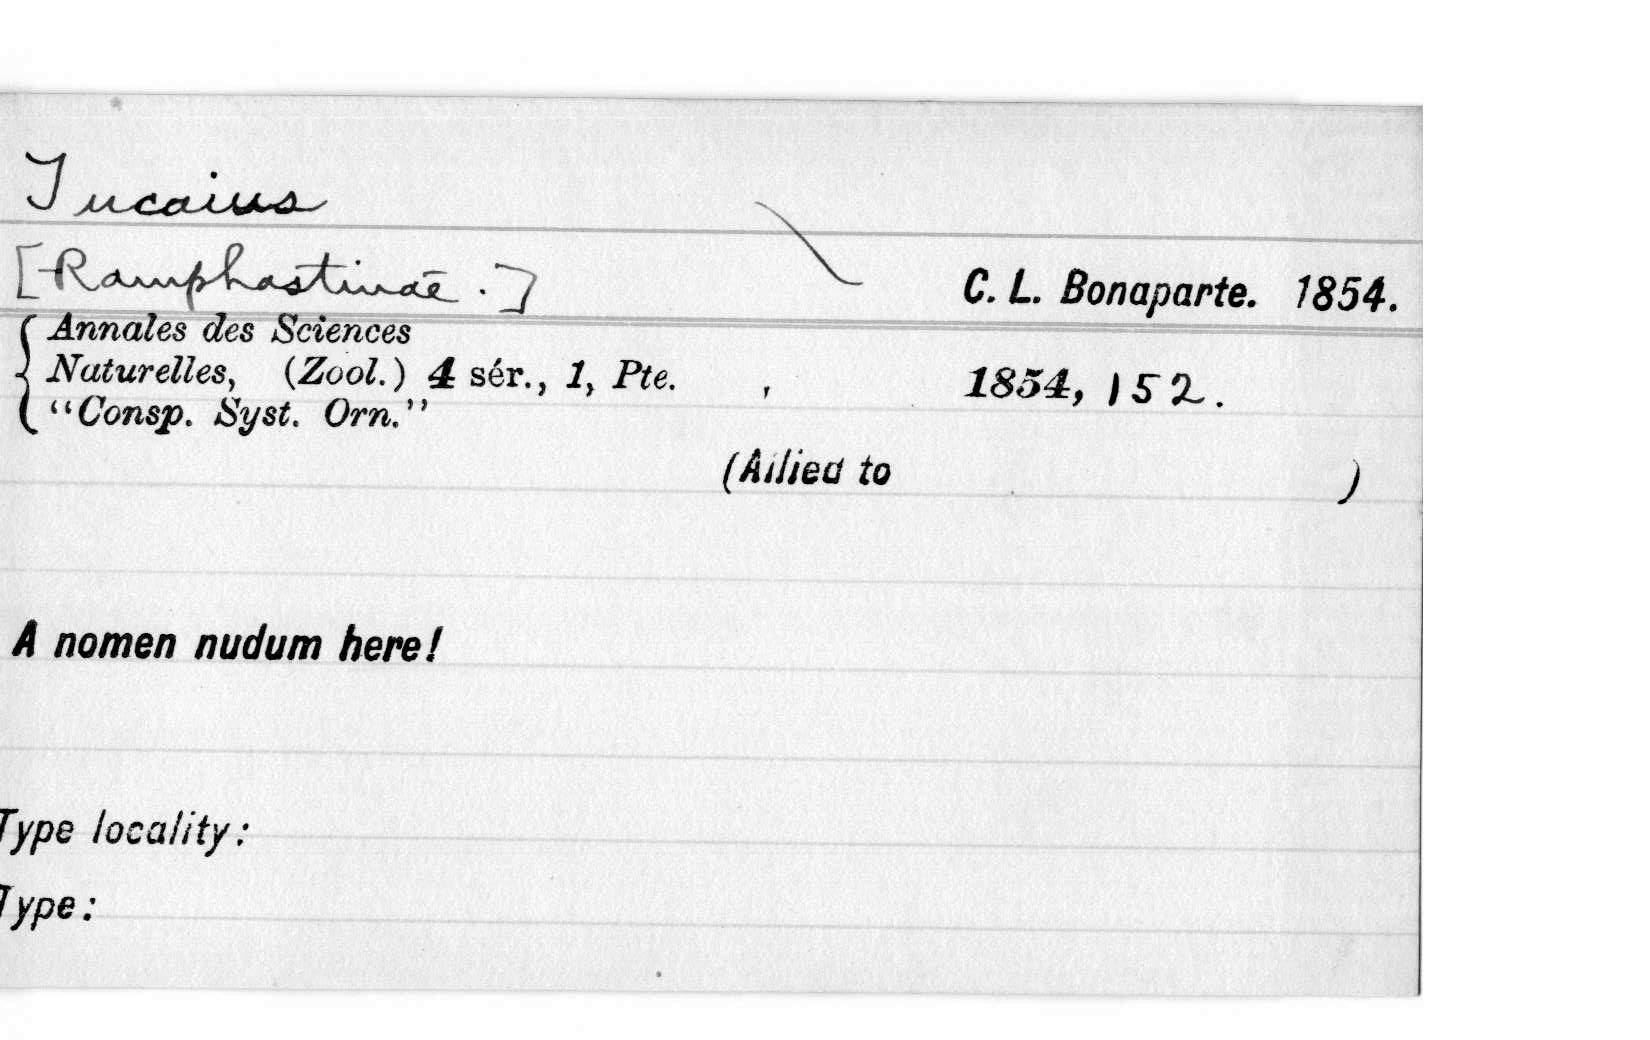 Tucaius
[Ramphastinae.]
C. L. Bonaparte. 1854.
Annales des Sciences
Naturelles, (Zool.) 4 sér., 1, Pte. , 1854, 152.
"Consp. Syst. Orn."
(Allied to )
A nomen nudum here!
Type locality:
Type: